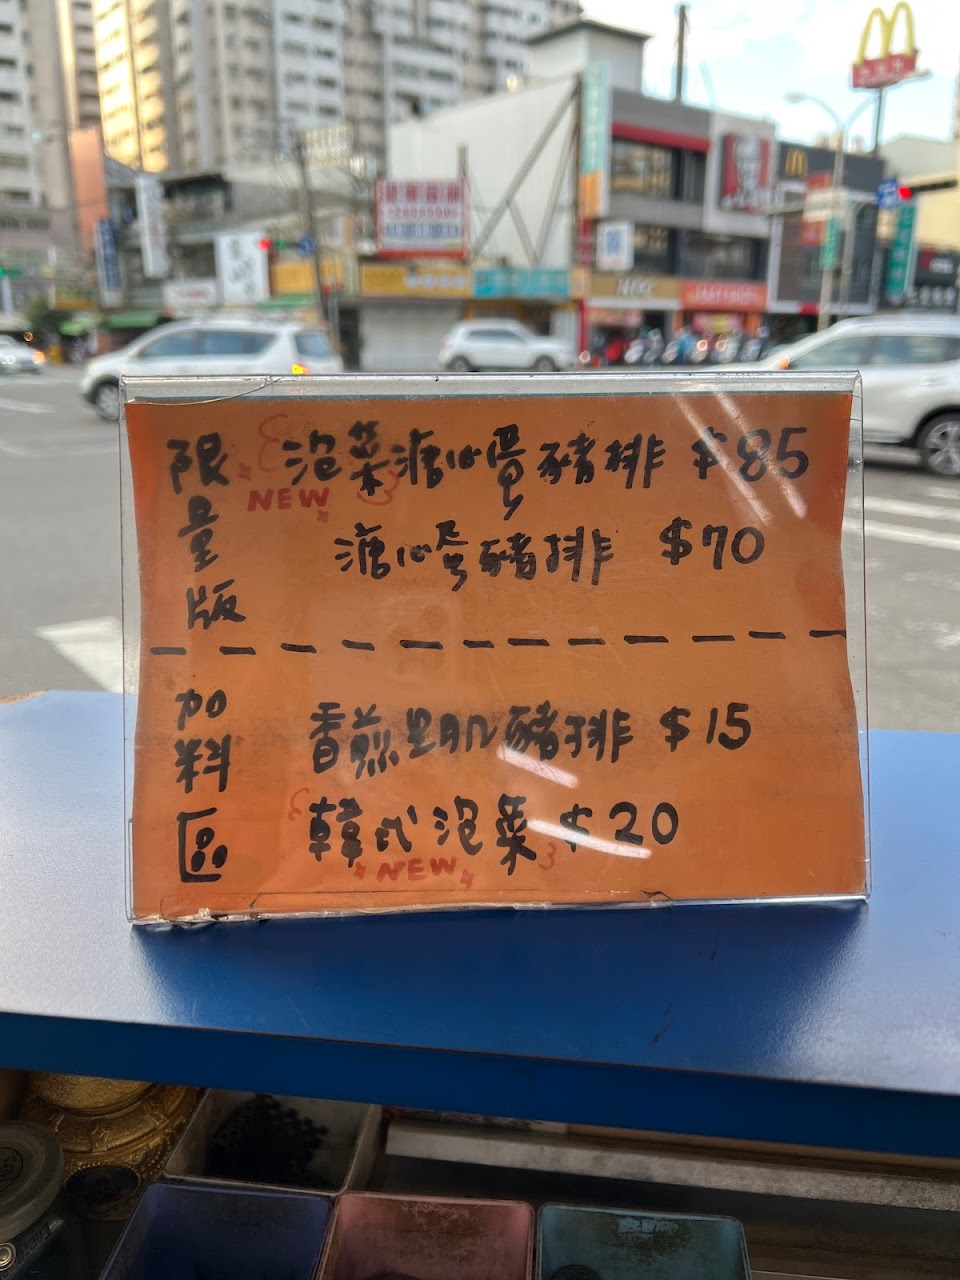 限量版
泡菜溏心蛋豬排 $85
NEW
溏心蛋豬排 $70
加料區
香煎里肌豬排 $15
韓式泡菜 $20
NEW
KFC